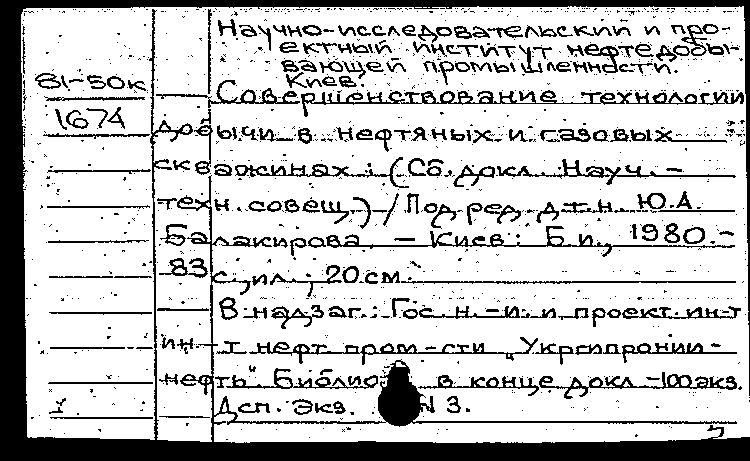 Научно-исследовательский и про-
ектный институт нефтедобы-
вающей промышленности.
Киев.
81-50к
Совершенствование технологии
1674
добычи в нефтяных и газовых
скважинах : (Сб. докл. Науч.-
техн. совещ.) / Под ред. д.т.н. Ю.А.
Балакирова. – Киев : Б.и., 1980. –
83 с., ил. ; 20 см.
В надзаг.: Гос. н.-и. и проект. ин-т
ин-т нефт. пром-сти „Укргипронии-
нефть". в конце докл. –100 экз.
Дсп. Экз. N 3.
1